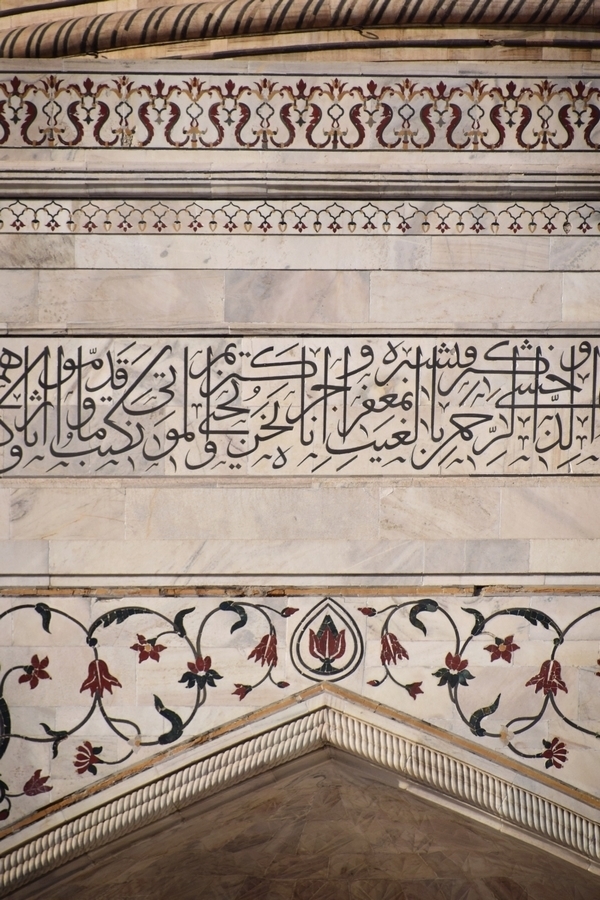 الذكر وخشى الرحمن بالغيب فبشره بمغفرة واجر كريم انا نحن نحى الموتى ونكتب ما قدموا واثارهم